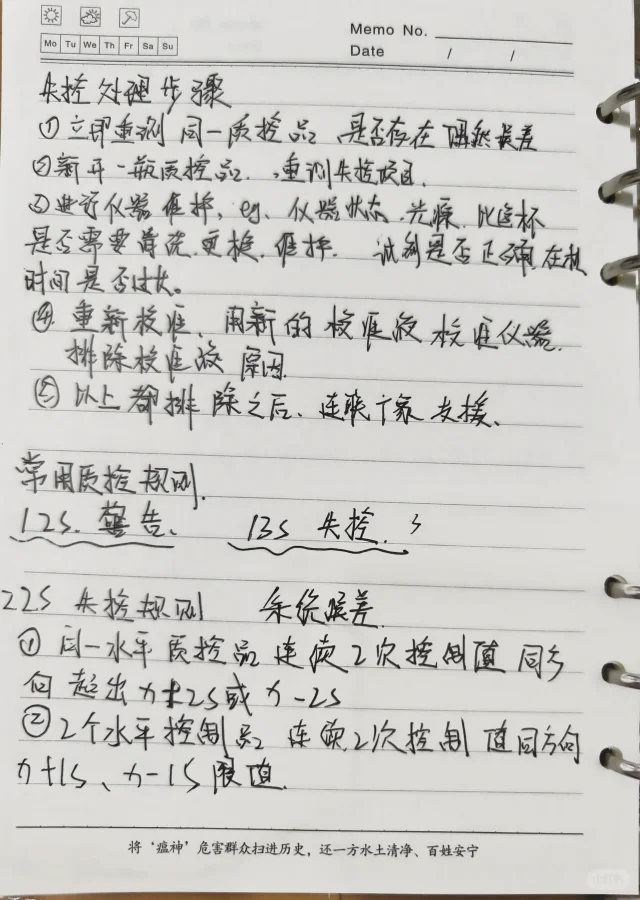 Memo No.
Mo Tu We Th Fr Sa Su
Date / /
失控处理步骤
①立即重测同一质控品,是否存在偶然误差
②新开一瓶质控品,重测失控项目.
③进行仪器维护,eg.仪器状态.光源.比色杯
是否需要清洗.更换.维护.试剂是否正确,在机
时间是否过长。
④.重新校准、用新的校准液校准仪器.
排除校准液原因.
⑤以上都排除之后、连联厂家支援、
常用质控规则.
12S.警告、 13S 失控.
22S 失控规则 系统误差.
①同一水平质控品连续2次控制值同方
向超出x+2S或x-2S
②2个水平控制品连续2次控制值同方向
x+1S、x-1S限值.
将‘瘟神’危害群众扫进历史,还一方水土清净、百姓安宁